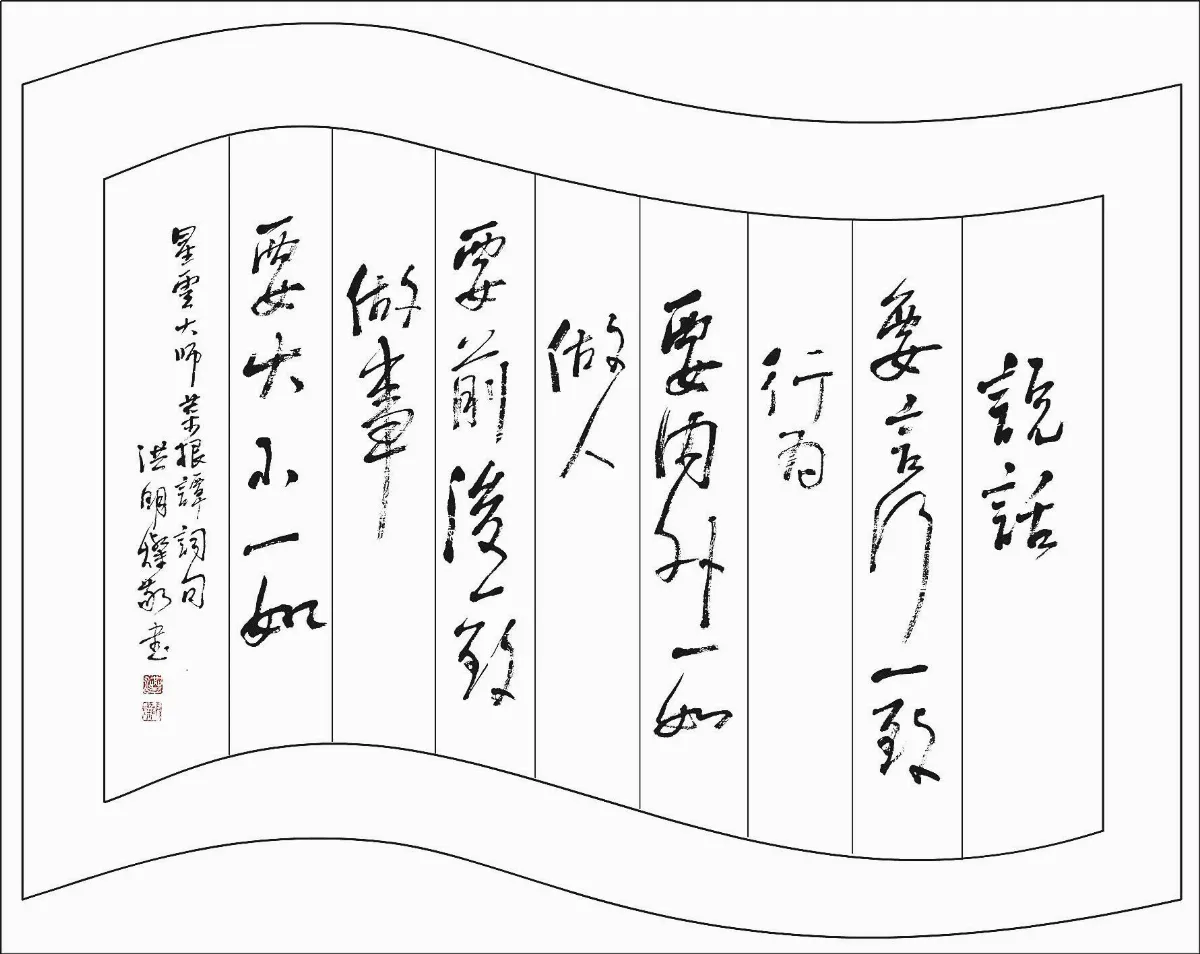 說話
要言行一致
行為
要內外一如
做人
要前後一致
做事
要大小一如
星雲大师菜根譚詞句
洪明燦敬書